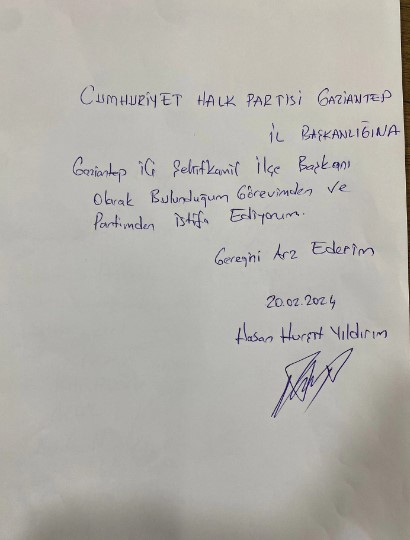 CUMHURİYET HALK PARTİSİ GAZİANTEP
İL BAŞKANLIĞINA
Gaziantep ili Şehitkamil İlçe Başkanı
Olarak Bulunduğum Görevimden ve
Partimden istifa Ediyorum.
Gereğini Arz Ederim
20.02.2024
Hasan Hurşit Yıldırım